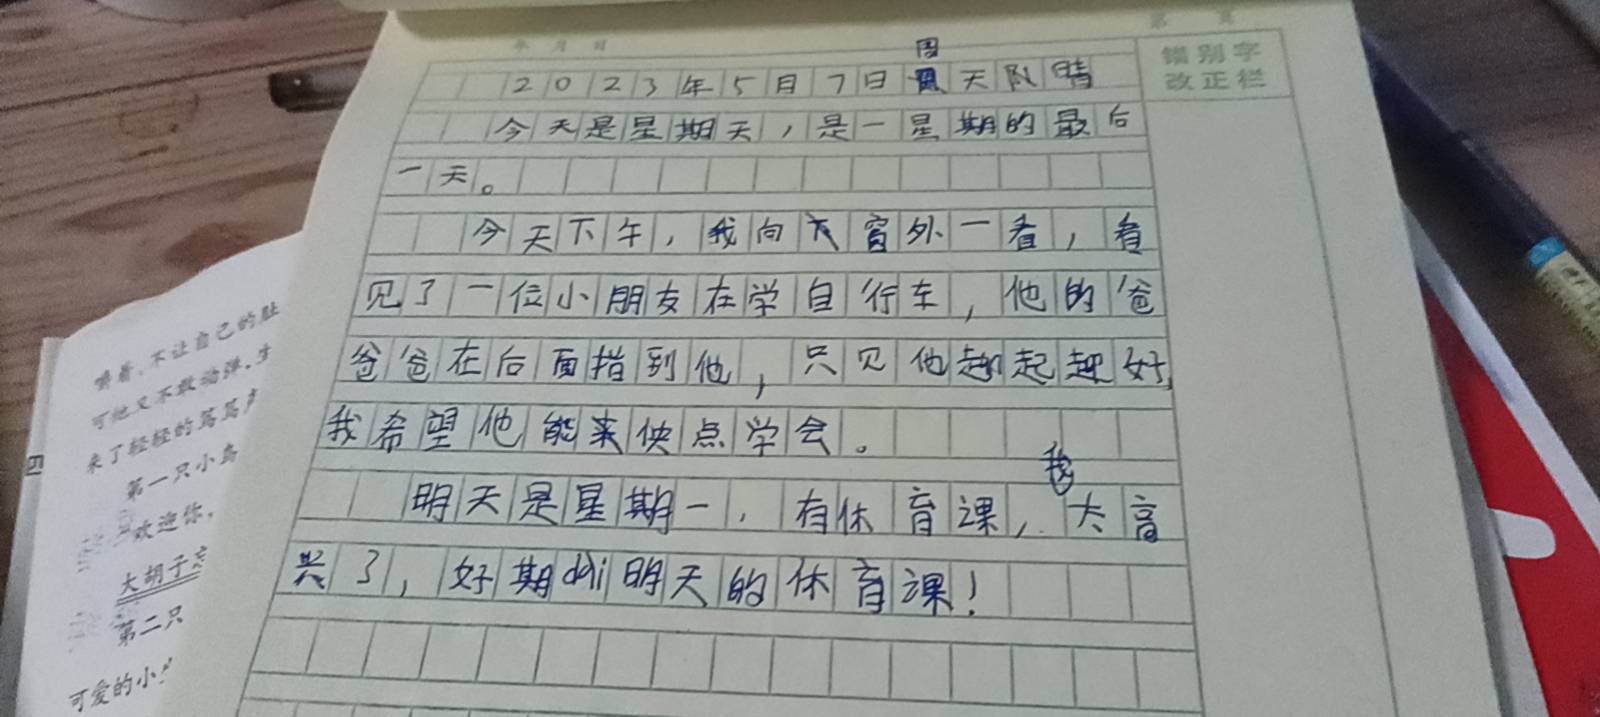 第 页
年 月 日
错别字
改正栏
周
2023年5月7日 天 晴
今天是星期天，是一星期的最后
一天。
今天下午，我向大窗外一看，看
见了一位小朋友在学自行车，他的爸
爸爸在后面指到他，只见他越起越好，
我希望他能来快点学会。
我
明天是星期一，有休育课，太高
兴了，好期dài明天的休育课！
嚼着，不让自己的肚
可他又不敢动弹，生
来了轻轻的笃笃声
第一只小鸟
欢迎你，
大胡子
第二只
可爱的小